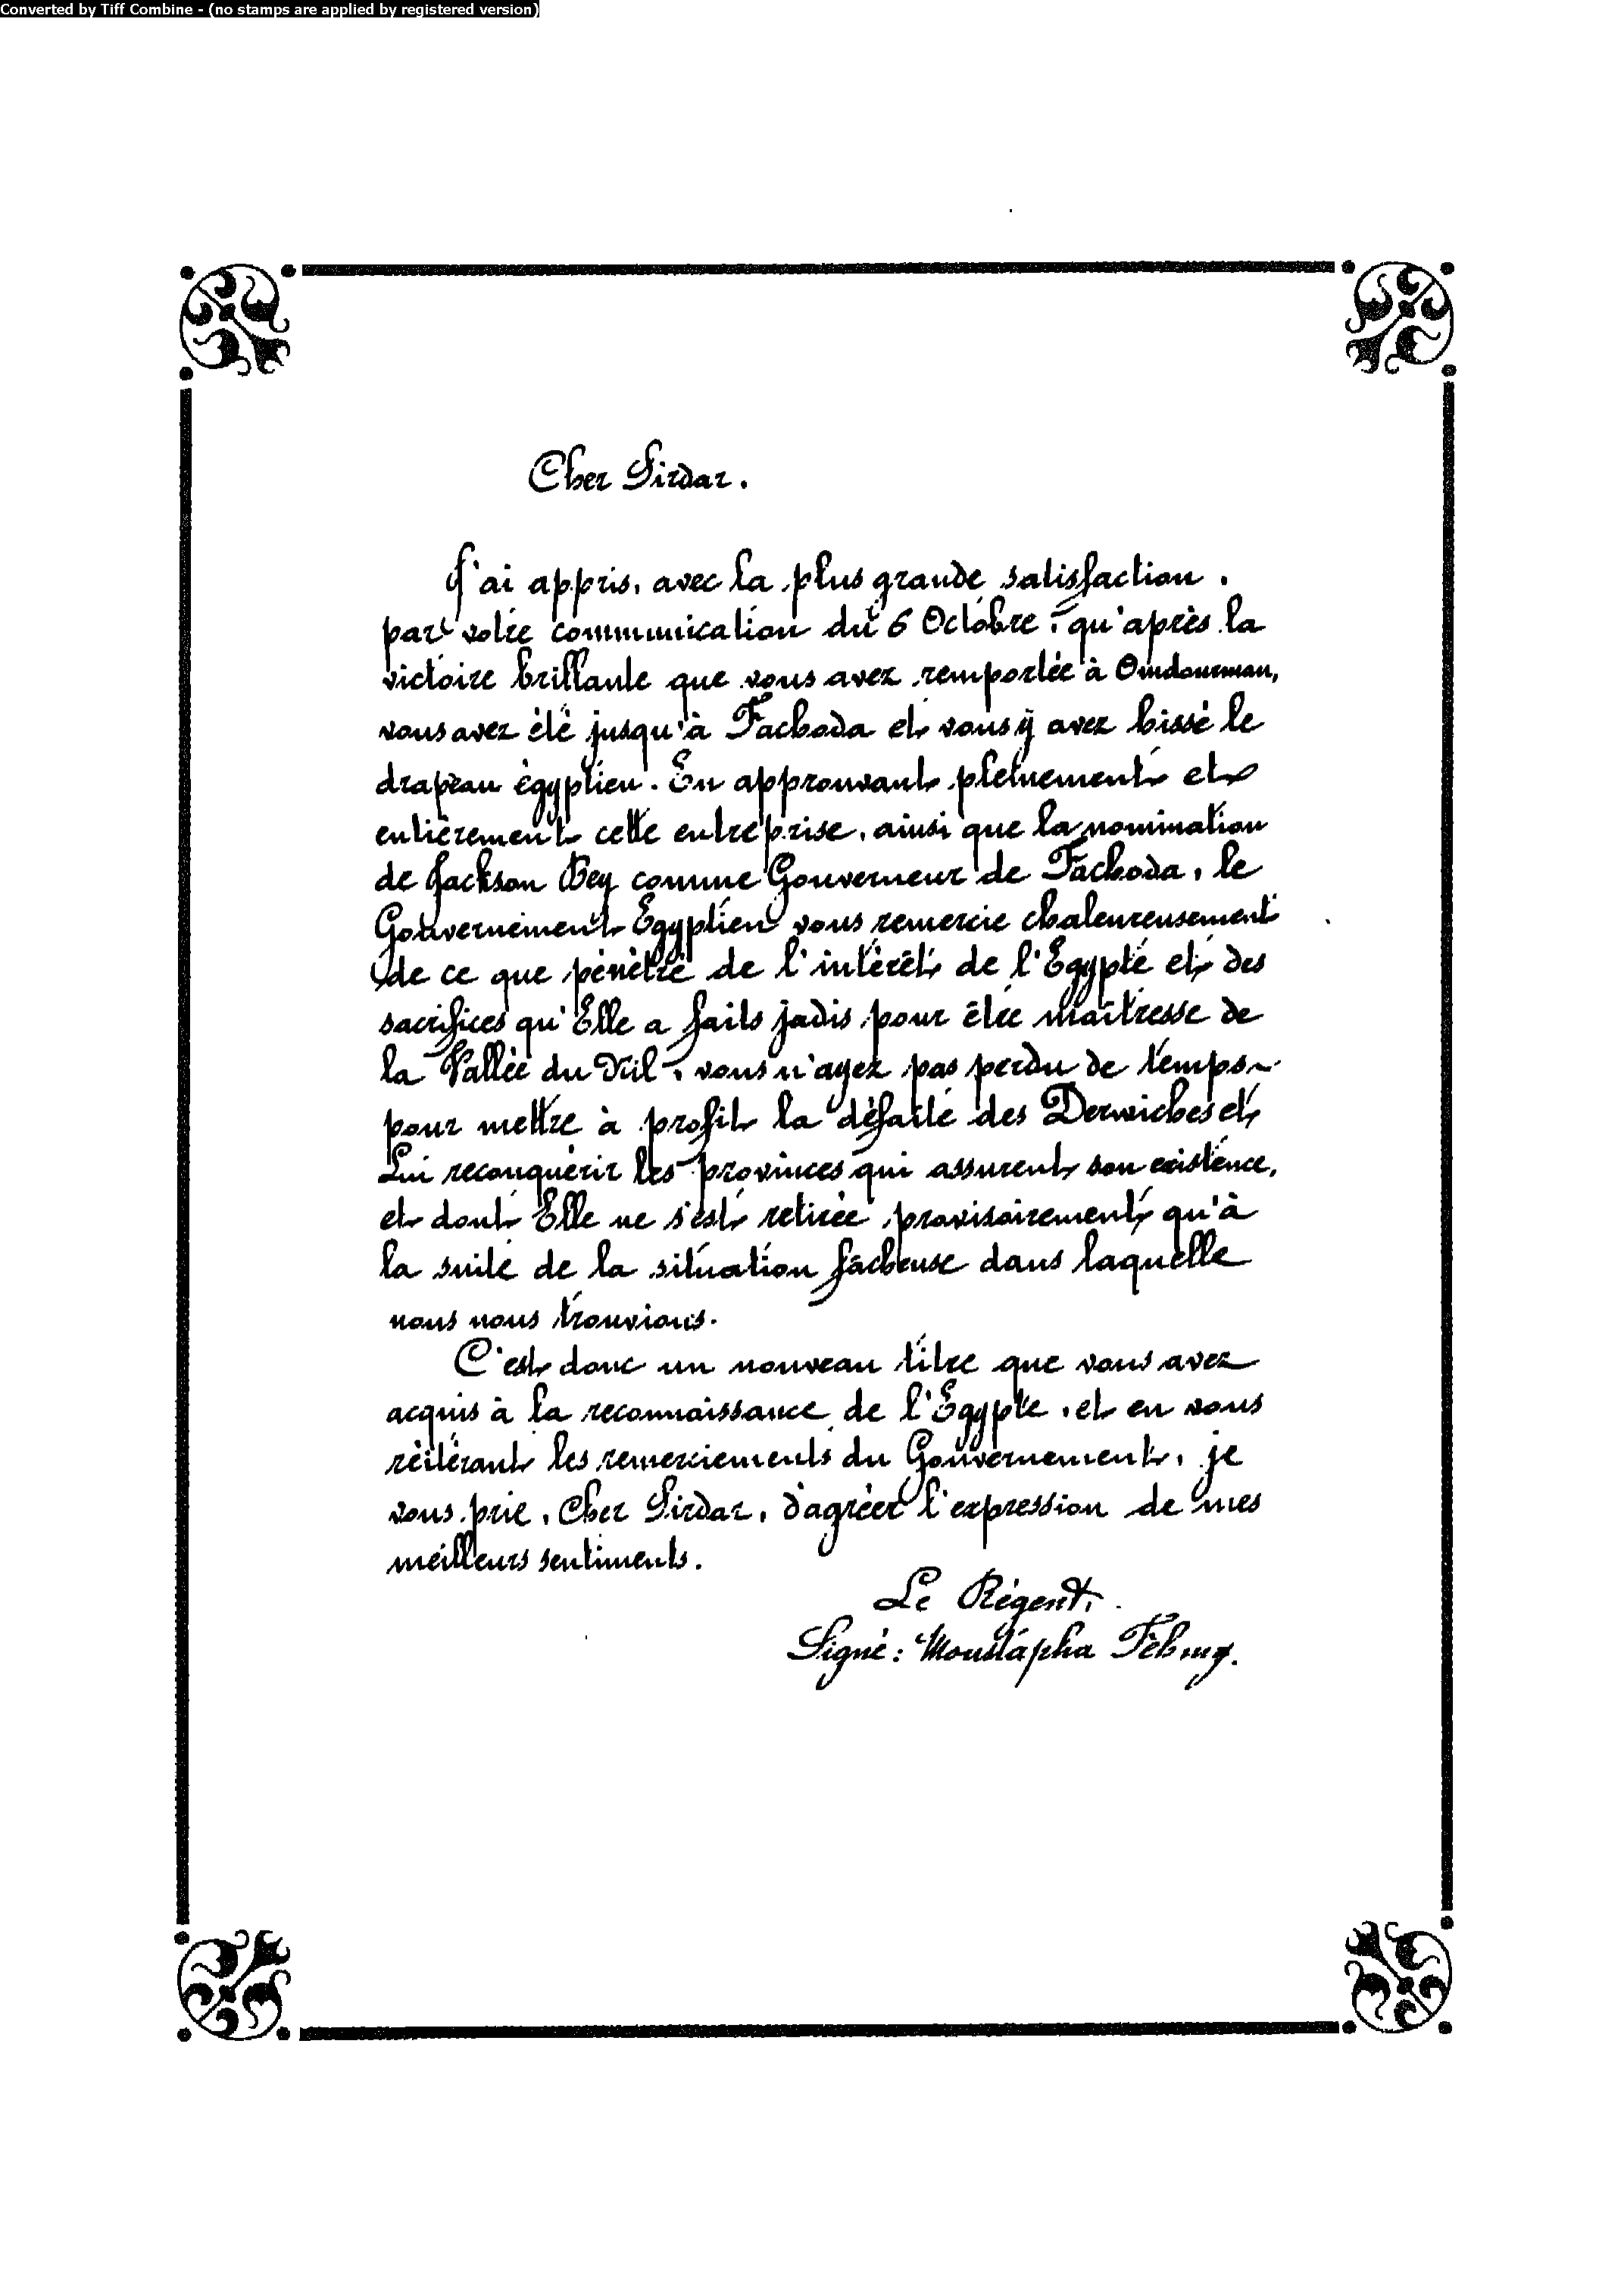 Converted by Tiff Combine - (no stamps are applied by registered version)
Cher Sirdar.
J'ai appris, avec la plus grande satisfaction,
par votre communication du 6 Octobre, qu'après la
victoire brillante que vous avez remportée à Omdourman,
vous avez été jusqu'à Fachoda et vous y avez hissé le
drapeau égyptien. En approuvant pleinement et
entièrement cette entreprise, ainsi que la nomination
de Jackson Bey comme Gouverneur de Fachoda, le
Gouvernement Egyptien vous remercie chaleureusement
de ce que pénétré de l'intérêt de l'Egypte et des
sacrifices qu'Elle a faits jadis pour être maîtresse de
la Vallée du Nil, vous n'ayez pas perdu de temps
pour mettre à profit la défaite des Derwiches et
Lui reconquérir les provinces qui assurent son existence,
et dont Elle ne s'est retirée provisoirement qu'à
la suite de la situation fâcheuse dans laquelle
nous nous trouvions.
C'est donc un nouveau titre que vous avez
acquis à la reconnaissance de l'Egypte, et en vous
réitérant les remerciements du Gouvernement, je
vous prie, Cher Sirdar, d'agréer l'expression de mes
meilleurs sentiments.
Le Régent,
Signé: Moustapha Fehmy.